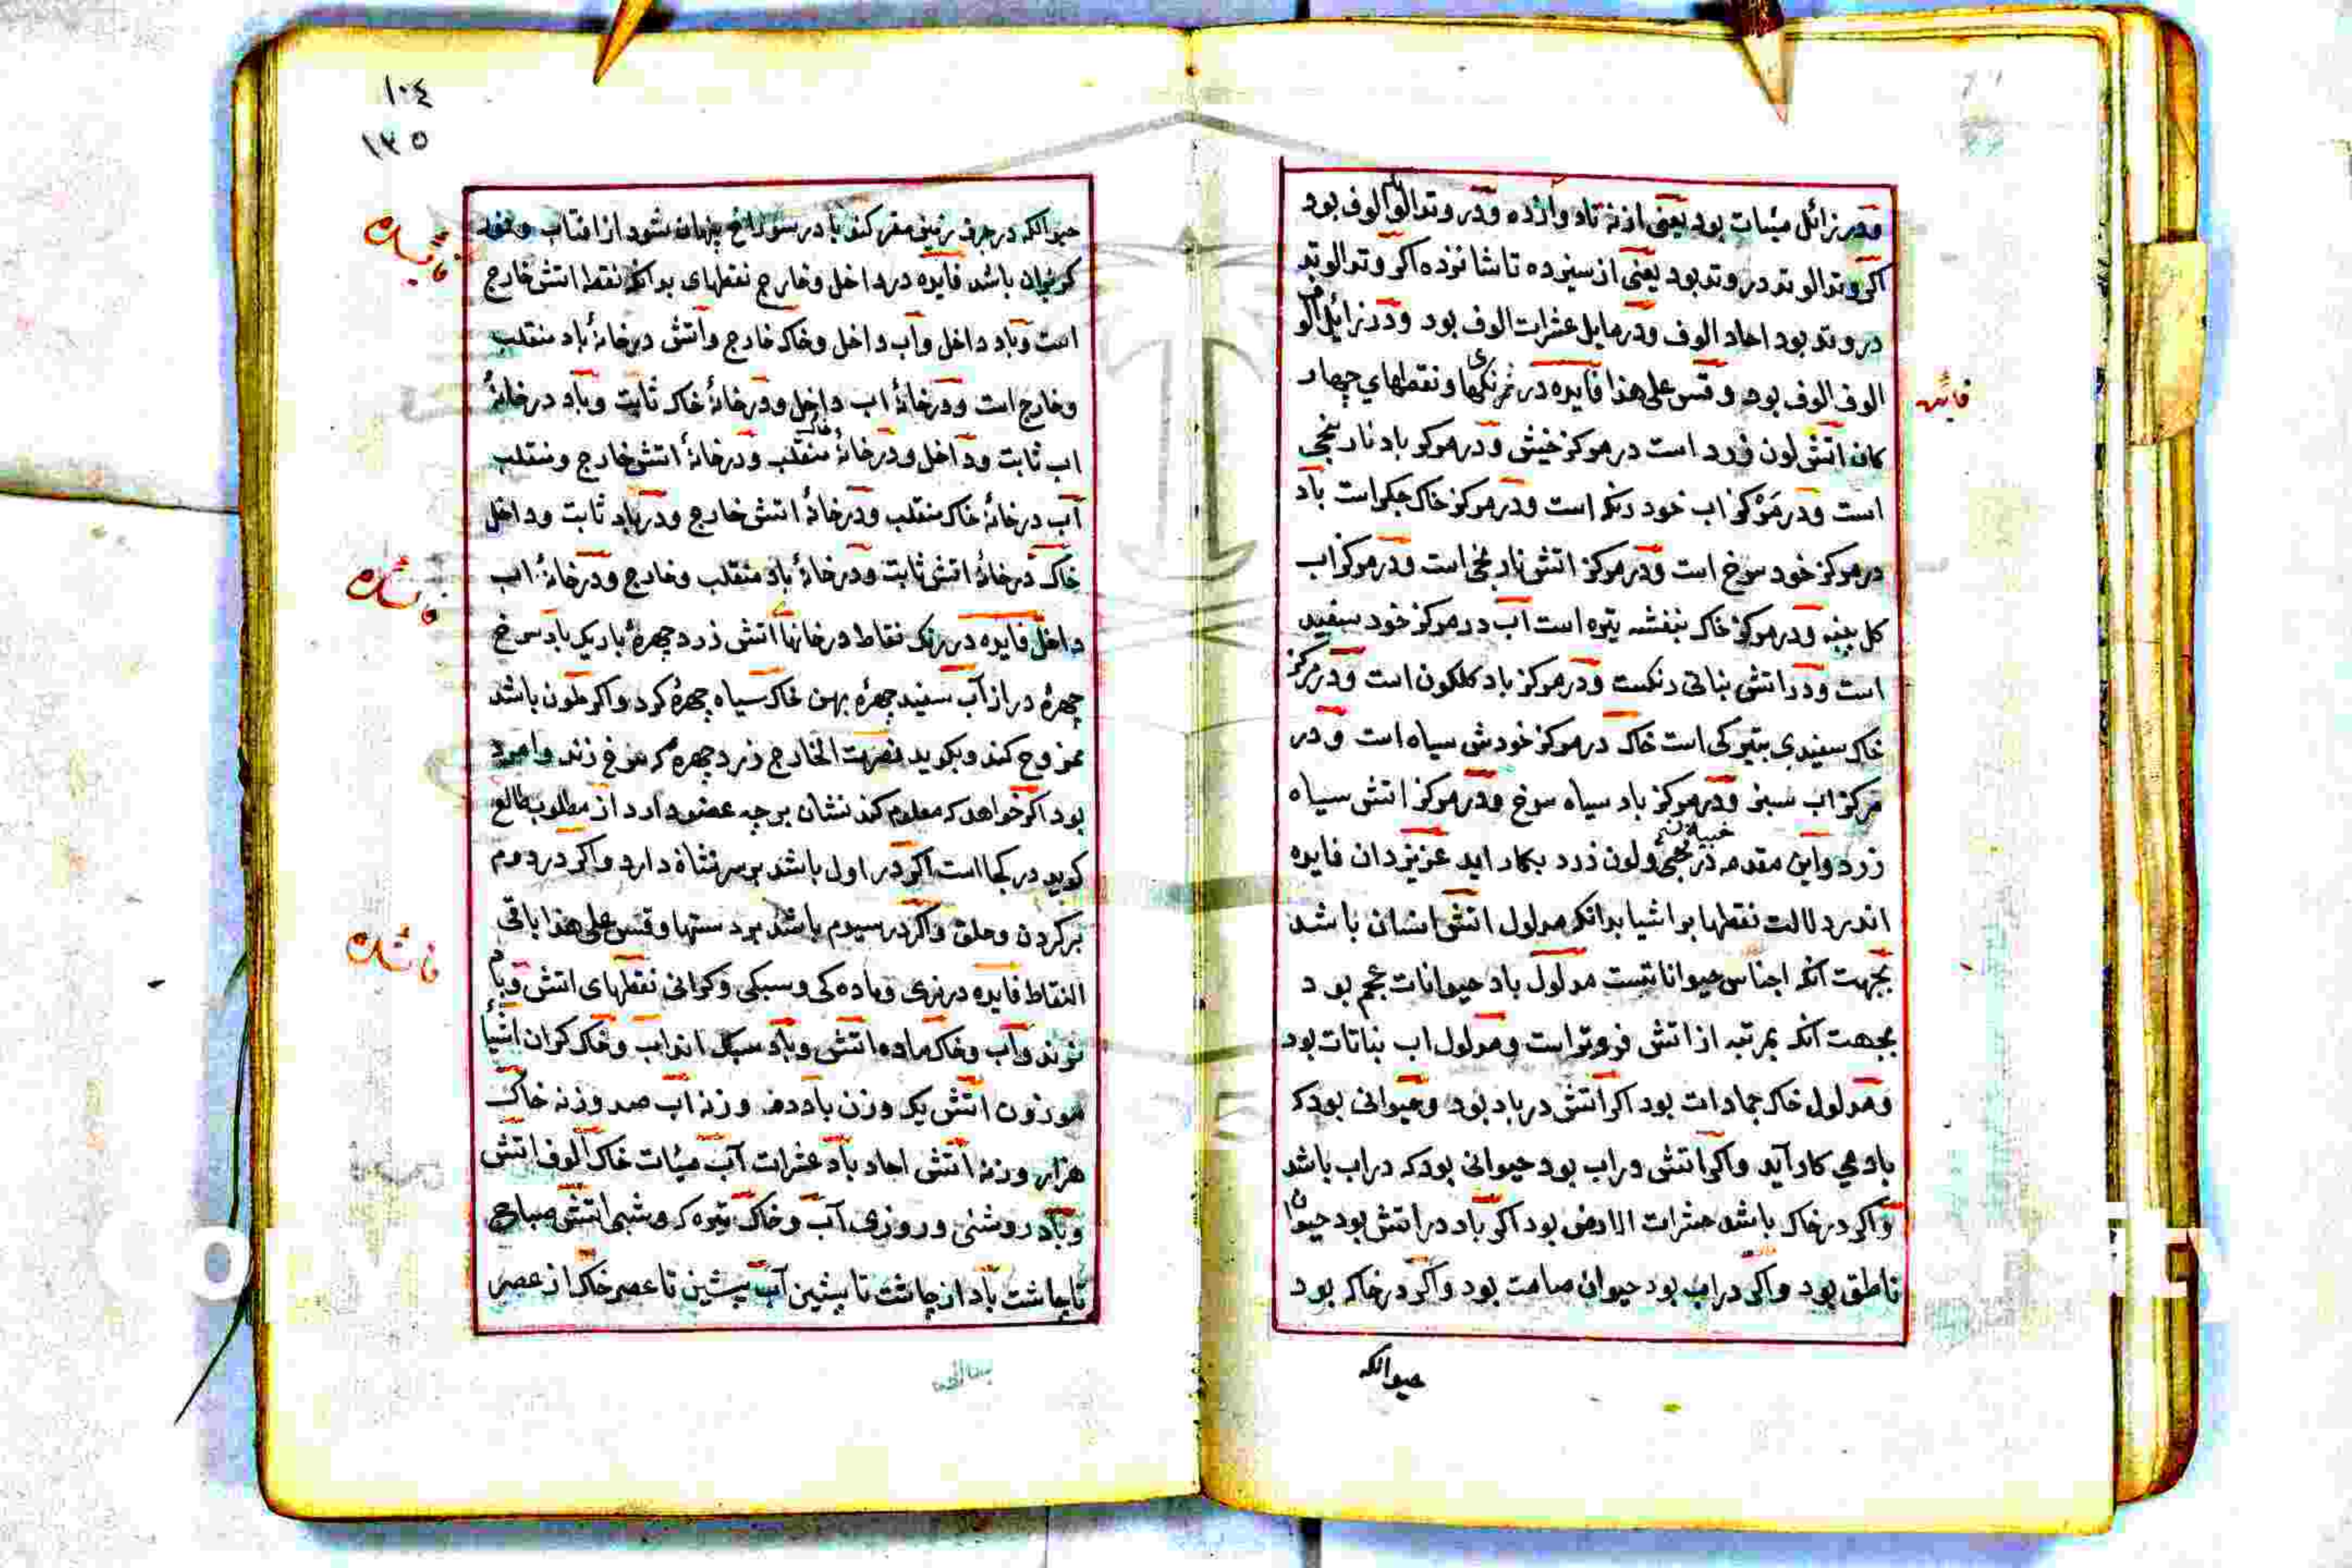 ودر زائل مئات بود یعنی از نه تا دوازده ودر وتد الوتد الوف بود
اکر وتد الوتد در وتد بود یعنی از سیزده تا شانزده اکر وتد الوتد
در وتد بود احاد الوف ودر مایل عشرات الوف بود ودر زائل
الوف الوف بود وقس علی هذا فایده در نقطهای چهار
کان اتش لون زرد است در مرکز خیش ودر مرکز باد نارنجی
است ودر مرکز اب خود رنک است ودر مرکز خاک جکر است باد
در مرکز خود سرخ است ودر مرکز اتش نارنجی است ودر مرکز اب
کل بنبه ودر مرکز خاک بنفشه تیره است اب در مرکز خود سفید
است ودر اتش نباتی رنکست ودر مرکز باد کلکون است ودر مرکز
خاک سفیدی بتیرکی است خاک در مرکز خودش سیاه است ودر
مرکز اب سبز ودر مرکز باد سیاه سرخ ودر مرکز اتش سیاه
زرد واین مقدمه در ولون زرد بکار اید عزیز دان فایده
اندر دلالت نقطها بر اشیا بدانکه مدلول اتش انسان باشد
بجهت انکه اجناس حیواناتست مدلول باد حیوانات عجم بود
بجهت آنکه بمرتبه از اتش فروتر است ومدلول اب نباتات بود
ومدلول خاک جمادات بود اکر اتش در باد بود وحیوانی بود که
بادمي کار آید واکر اتش در اب بود حیوانی بود که در اب باشد
واکر در خاک باشد حشرات الارض بود اکر باد در اتش بود حیوان
ناطق بود واکر در اب بود حیوان صامت بود واکر در خاک بود
حیوانکه
فایده
١٠٤
١٣٥
حیوانکه در جرف زمینی مقر کند یا در سوراخ پنهان شود از افتاب
کریزان باشد فایده در داخل وخارج نقطهای بدانکه نقطه اتش خارج
است وباد داخل وآب داخل وخاک خارج وآتش در خانهٔ باد منقلب
وخارج است ودر خانهٔ اب داخل ودر خانهٔ خاک ثابت وباد در خانهٔ
اب ثابت وداخل ودر خانهٔ خاک منقلب ودر خانهٔ اتش خارج ومنقلب
آب در خانهٔ خاک منقلب ودر خانهٔ اتش خارج ودر باد ثابت وداخل
خاک در خانهٔ اتش ثابت ودر خانهٔ باد منقلب وخارج ودر خانهٔ اب
داخل فایده در رنک نقاط در خانها اتش زرد چهرهٔ باریک باد سرخ
چهرهٔ دراز آب سفید چهرهٔ پهن خاک سیاه چهرهٔ کرد واکر ملون باشد
ممزوج کند وبکوید نصرت الخارج زرد چهره که سرخ زند وامرد
بود اکر خواهد که معلوم کند نشان بر چه عضو دارد از مطلوب طالع
کوید در کجا است اکر در اول باشد بر سر نشاة دارد واکر در دوم
بر کردن وحلق واکر در سیوم باشد بر دستها وقس علی هذا باقی
النقاط فایده در نری وماده کی وسبکی وکرانی نقطهای اتش وباد
نرند وآب وخاک ماده اتش وباد سبک اند اب وخاک کران اشیا
موزون اتش یک وزن باد ده وزنه اب صد وزنه خاک
هزار وزنه اتش احاد باد عشرات آب مئات خاک الوف اتش
وباد روشنی وروزی آب وخاک تیره که وشبی اتش صباح
تا چاشت باد از چاشت تا پیشین آب پیشین تا عصر خاک از عصر
فایده
فایده
فایده